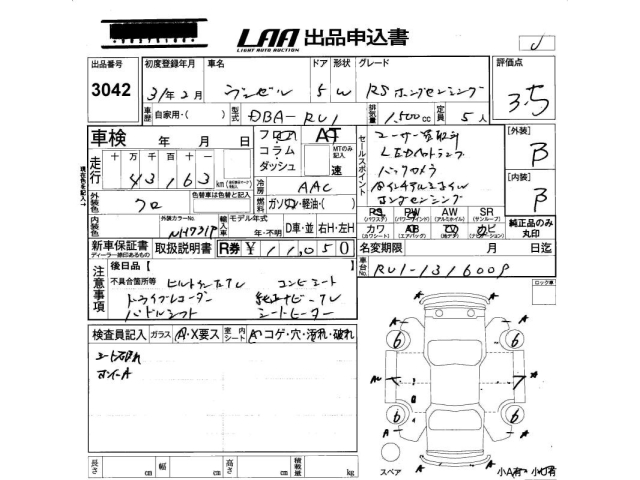 LAA 出品申込書
LIGHT AUTO AUCTION
出品番号 初度登録年月 車名 ドア 形状 グレード 評価点
3042 31年2月 ヴェゼル 5 W RS ホンダセンシング 3.5
車歴 自家用・( ) 型式 DBA-RU1 排気量 1,500cc 定員 5人
車検 年 月 日 フロア コラム・ダッシュ AT MTのみ記入 速
セールスポイント
ユーザー買取車
LEDヘッドランプ
バックカメラ
ホンダセンシング
[外装] B
[内装] B
走行 十 万 千 百 十 一
43163 km
冷房 AAC
外装色 クロ 色替車は色替と記入 燃料 ガソリン・軽油・( )
外装カラーNo. NH731P 輸入車 モデル年式 年・不明 D車・並 右H・左H
PS (パワステ) PW (パワーウィンドウ) AW (アルミホイル) SR (サンルーフ)
カワ (カワシート) AB (エアバック) TV (地デジ) ナビ (ナビゲーション)
純正品のみ丸印
新車保証書 取扱説明書 R券 ¥11,050
ディーラー検印のあるもの
名変期限 月 日迄
車台No. RU1-1316009
注意事項
後日品【 】
不具合箇所等 ビルトインETC コンビシート
ドライブレコーダー 純正ナビTV
パドルシフト シートヒーター
ロック車
検査員記入 ガラス A・X要ス 室内シート A・コゲ・穴・汚れ・破れ
シート破れ
A A
6 6
A
6 6
A A
スペア
小A有 小U有
長さ cm 幅 cm 高さ cm 積載量 kg
現在色を記入